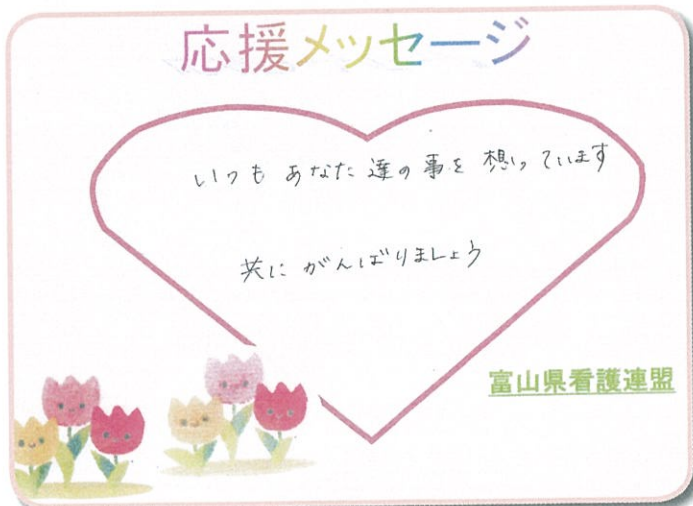 応援メッセージ
いつもあなた達の事を想っています
共にがんばりましょう
富山県看護連盟